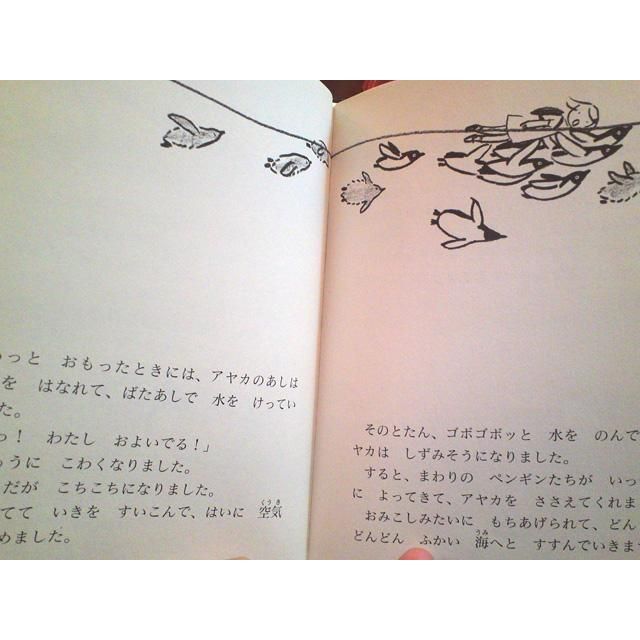 っと おもったときには、アヤカのあしは
を はなれて、ばたあしで 水を けってい
た。
っ! わたし およいでる!」
うに こわくなりました。
だが こちこちになりました。
てて いきを すいこんで、はいに 空気
めました。
そのとたん、ゴボゴボッと 水を のんで
ヤカは しずみそうになりました。
すると、まわりの ペンギンたちが いっ
に よってきて、アヤカを ささえてくれま
おみこしみたいに もちあげられて、どん
どんどん ふかい 海へと すすんでいきま